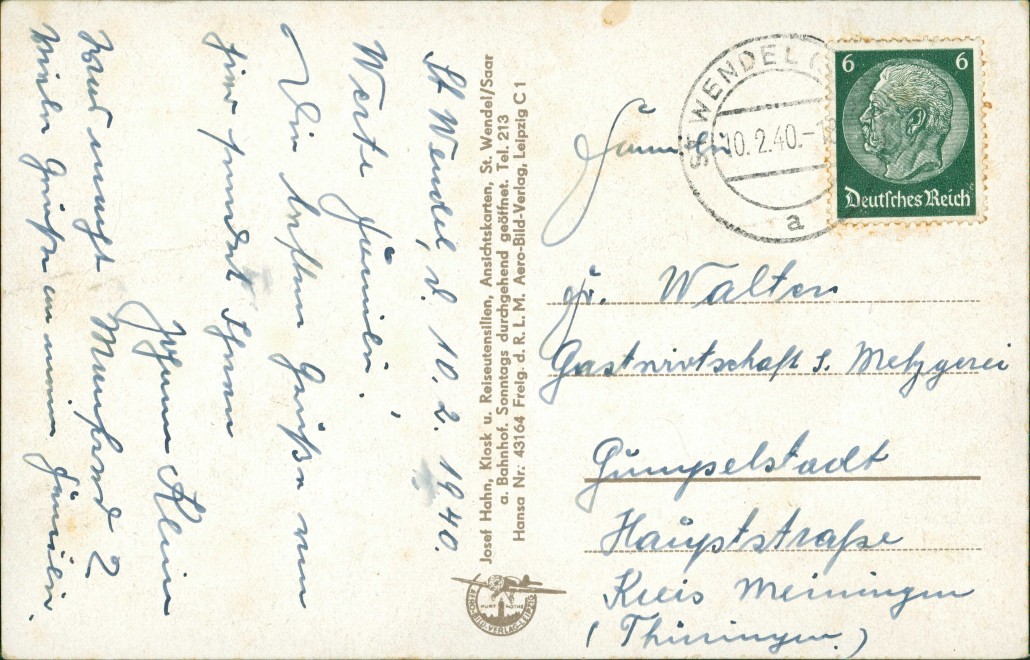 St Wendel, d. 10. 2. 1940.
Werte Familie!
Die besten Grüße von
hier sendet Ihnen
Johann Klein
Was macht Meinhard 2
viele Grüße an meine Familie.
Josef Hahn, Kiosk u. Reiseutensilien, Ansichtskarten, St. Wendel/Saar
a. Bahnhof. Sonntags durchgehend geöffnet. Tel. 213
Hansa Nr. 43164 Freig. d. R. L. M. Aero-Bild-Verlag, Leipzig C 1
AERO-BILD-VERLAG-LEIPZIG
KURT ROTHE
ST. WENDEL (
10. 2. 40.-1
a
6 6
Deutsches Reich
Familie
Fr. Walter
Gastwirtschaft u. Metzgerei
Gumpelstadt
Hauptstraße
Kreis Meiningen
(Thüringen)